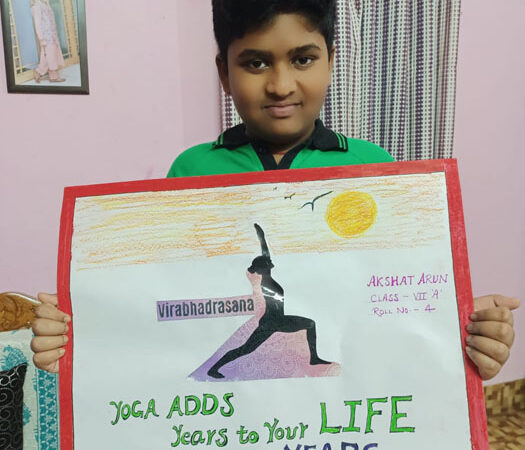 Virabhadrasana
AKSHAT ARUN
CLASS - VII 'A'
ROLL NO. - 4
YOGA ADDS
Years to Your LIFE
YEARS